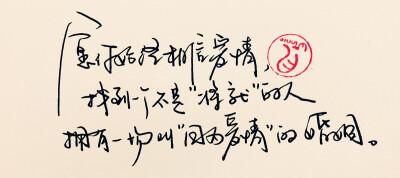 愿你始终相信爱情,
找到一个不是“将就”的人
拥有一场叫“因为爱情”的婚姻。